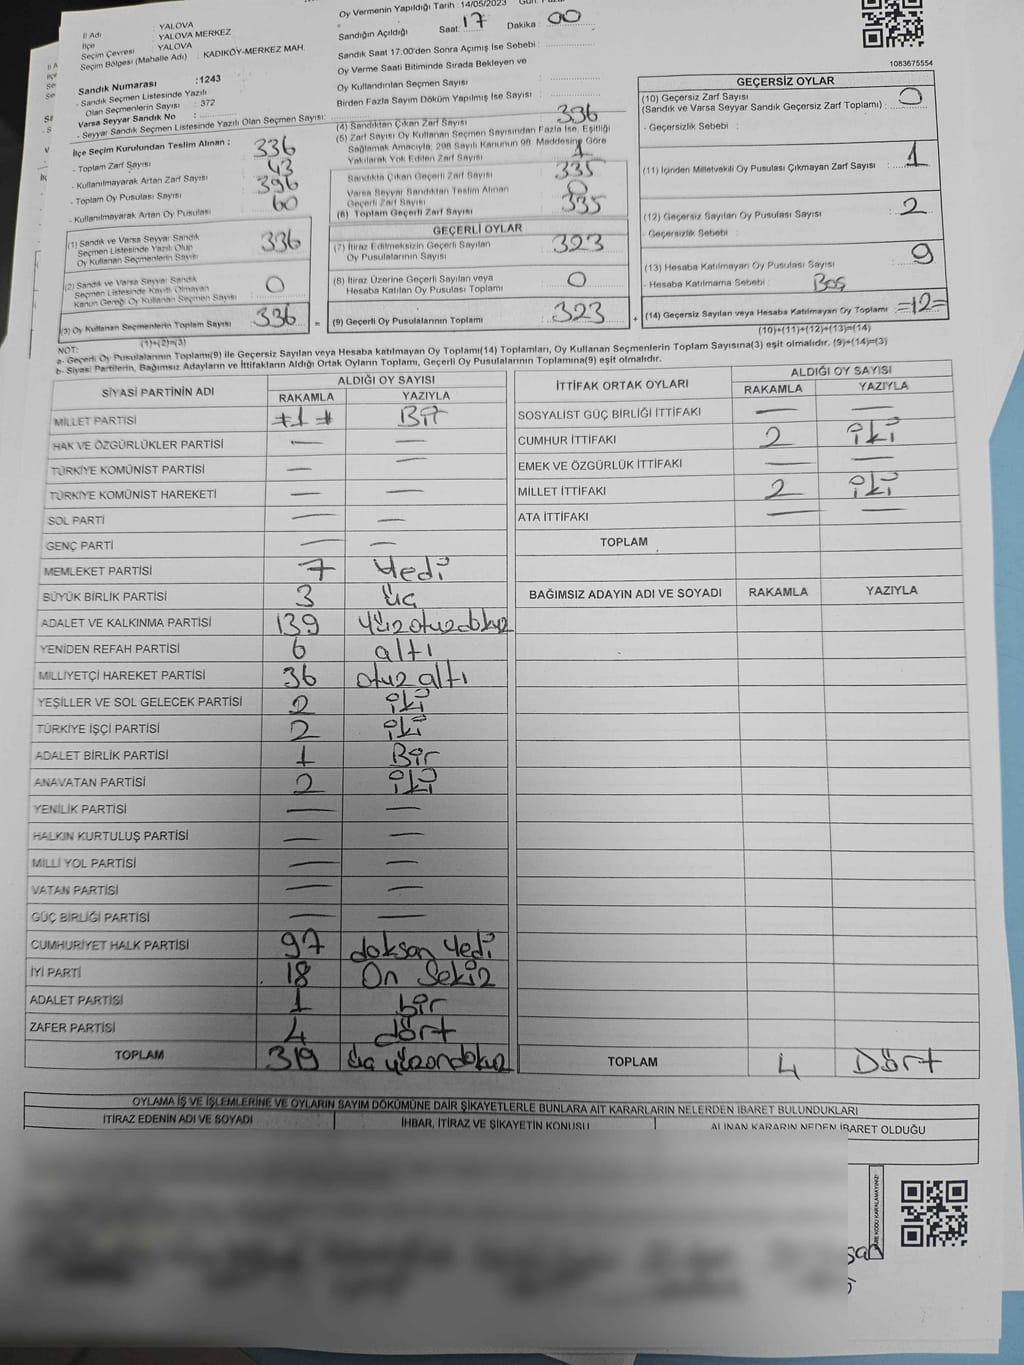 Oy Vermenin Yapıldığı Tarih : 14/05/2023 Gün
İl Adı : YALOVA
İlçe : YALOVA MERKEZ
Seçim Çevresi : YALOVA
Seçim Bölgesi (Mahalle Adı) : KADIKÖY-MERKEZ MAH.
Sandık Numarası : 1243
- Sandık Seçmen Listesinde Yazılı
Olan Seçmenlerin Sayısı : 372
Varsa Seyyar Sandık No :
- Seyyar Sandık Seçmen Listesinde Yazılı Olan Seçmen Sayısı:
İlçe Seçim Kurulundan Teslim Alınan :
- Toplam Zarf Sayısı 336
- Kullanılmayarak Artan Zarf Sayısı 43
- Toplam Oy Pusulası Sayısı 396
- Kullanılmayarak Artan Oy Pusulası 60
(1) Sandık ve Varsa Seyyar Sandık
Seçmen Listesinde Yazılı Olup
Oy Kullanan Seçmenlerin Sayısı 336
(2) Sandık ve Varsa Seyyar Sandık
Seçmen Listesinde Kayıtlı Olmayan
Kanun Gereği Oy Kullanan Seçmen Sayısı 0
(3) Oy Kullanan Seçmenlerin Toplam Sayısı 336 =
(1)+(2)=(3)
Sandığın Açıldığı Saat: 17 Dakika : 00
Sandık Saat 17:00'den Sonra Açılmış İse Sebebi :
Oy Verme Saati Bitiminde Sırada Bekleyen ve
Oy Kullandırılan Seçmen Sayısı :
Birden Fazla Sayım Döküm Yapılmış İse Sayısı :
(4) Sandıktan Çıkan Zarf Sayısı : 336
(5) Zarf Sayısı Oy Kullanan Seçmen Sayısından Fazla İse, Eşitliği
Sağlamak Amacıyla, 298 Sayılı Kanunun 98. Maddesine Göre
Yakılarak Yok Edilen Zarf Sayısı 1
Sandıkta Çıkan Geçerli Zarf Sayısı 335
Varsa Seyyar Sandıktan Teslim Alınan
Geçerli Zarf Sayısı 0
(6) Toplam Geçerli Zarf Sayısı 335
GEÇERLİ OYLAR
(7) İtiraz Edilmeksizin Geçerli Sayılan
Oy Pusulalarının Sayısı 323
(8) İtiraz Üzerine Geçerli Sayılan veya
Hesaba Katılan Oy Pusulası Toplamı 0
(9) Geçerli Oy Pusulalarının Toplamı 323 +
1083675554
GEÇERSİZ OYLAR
(10) Geçersiz Zarf Sayısı
(Sandık ve Varsa Seyyar Sandık Geçersiz Zarf Toplamı) : 0
- Geçersizlik Sebebi :
(11) İçinden Milletvekili Oy Pusulası Çıkmayan Zarf Sayısı : 1
(12) Geçersiz Sayılan Oy Pusulası Sayısı : 2
- Geçersizlik Sebebi :
(13) Hesaba Katılmayan Oy Pusulası Sayısı : 9
- Hesaba Katılmama Sebebi : Boş
(14) Geçersiz Sayılan veya Hesaba Katılmayan Oy Toplamı =12=
(10)+(11)+(12)+(13)=(14)
NOT:
a- Geçerli Oy Pusulalarının Toplamı(9) ile Geçersiz Sayılan veya Hesaba katılmayan Oy Toplamı(14) Toplamları, Oy Kullanan Seçmenlerin Toplam Sayısına(3) eşit olmalıdır. (9)+(14)=(3)
b- Siyasi Partilerin, Bağımsız Adayların ve İttifakların Aldığı Ortak Oyların Toplamı, Geçerli Oy Pusulalarının Toplamına(9) eşit olmalıdır.
SİYASİ PARTİNİN ADI ALDIĞI OY SAYISI
RAKAMLA YAZIYLA
MİLLET PARTİSİ 1 Bir
HAK VE ÖZGÜRLÜKLER PARTİSİ — —
TÜRKİYE KOMÜNİST PARTİSİ — —
TÜRKİYE KOMÜNİST HAREKETİ — —
SOL PARTİ — —
GENÇ PARTİ — —
MEMLEKET PARTİSİ 7 Yedi
BÜYÜK BİRLİK PARTİSİ 3 üç
ADALET VE KALKINMA PARTİSİ 139 Yüzotuzdokuz
YENİDEN REFAH PARTİSİ 6 altı
MİLLİYETÇİ HAREKET PARTİSİ 36 otuz altı
YEŞİLLER VE SOL GELECEK PARTİSİ 2 iki
TÜRKİYE İŞÇİ PARTİSİ 2 iki
ADALET BİRLİK PARTİSİ 1 Bir
ANAVATAN PARTİSİ 2 iki
YENİLİK PARTİSİ — —
HALKIN KURTULUŞ PARTİSİ — —
MİLLİ YOL PARTİSİ — —
VATAN PARTİSİ — —
GÜÇ BİRLİĞİ PARTİSİ — —
CUMHURİYET HALK PARTİSİ 97 doksan Yedi
İYİ PARTİ 18 On Sekiz
ADALET PARTİSİ 1 bir
ZAFER PARTİSİ 4 dört
TOPLAM 319 üç yüzondokuz
İTTİFAK ORTAK OYLARI ALDIĞI OY SAYISI
RAKAMLA YAZIYLA
SOSYALİST GÜÇ BİRLİĞİ İTTİFAKI — —
CUMHUR İTTİFAKI 2 iki
EMEK VE ÖZGÜRLÜK İTTİFAKI — —
MİLLET İTTİFAKI 2 iki
ATA İTTİFAKI — —
TOPLAM
BAĞIMSIZ ADAYIN ADI VE SOYADI RAKAMLA YAZIYLA
TOPLAM 4 Dört
OYLAMA İŞ VE İŞLEMLERİNE VE OYLARIN SAYIM DÖKÜMÜNE DAİR ŞİKAYETLERLE BUNLARA AİT KARARLARIN NELERDEN İBARET BULUNDUKLARI
İTİRAZ EDENİN ADI VE SOYADI İHBAR, İTİRAZ VE ŞİKAYETİN KONUSU ALINAN KARARIN NEDEN İBARET OLDUĞU